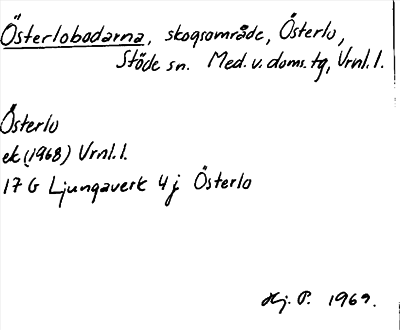 Österlobodarna, skogsområde, Österlo,
Stöde sn. Med. v. doms. tg, Vrnl. l.
Österlo
ek (1968) Vrnl. l.
17 G Ljungaverk 4 j Österlo
Hj. P. 1969.